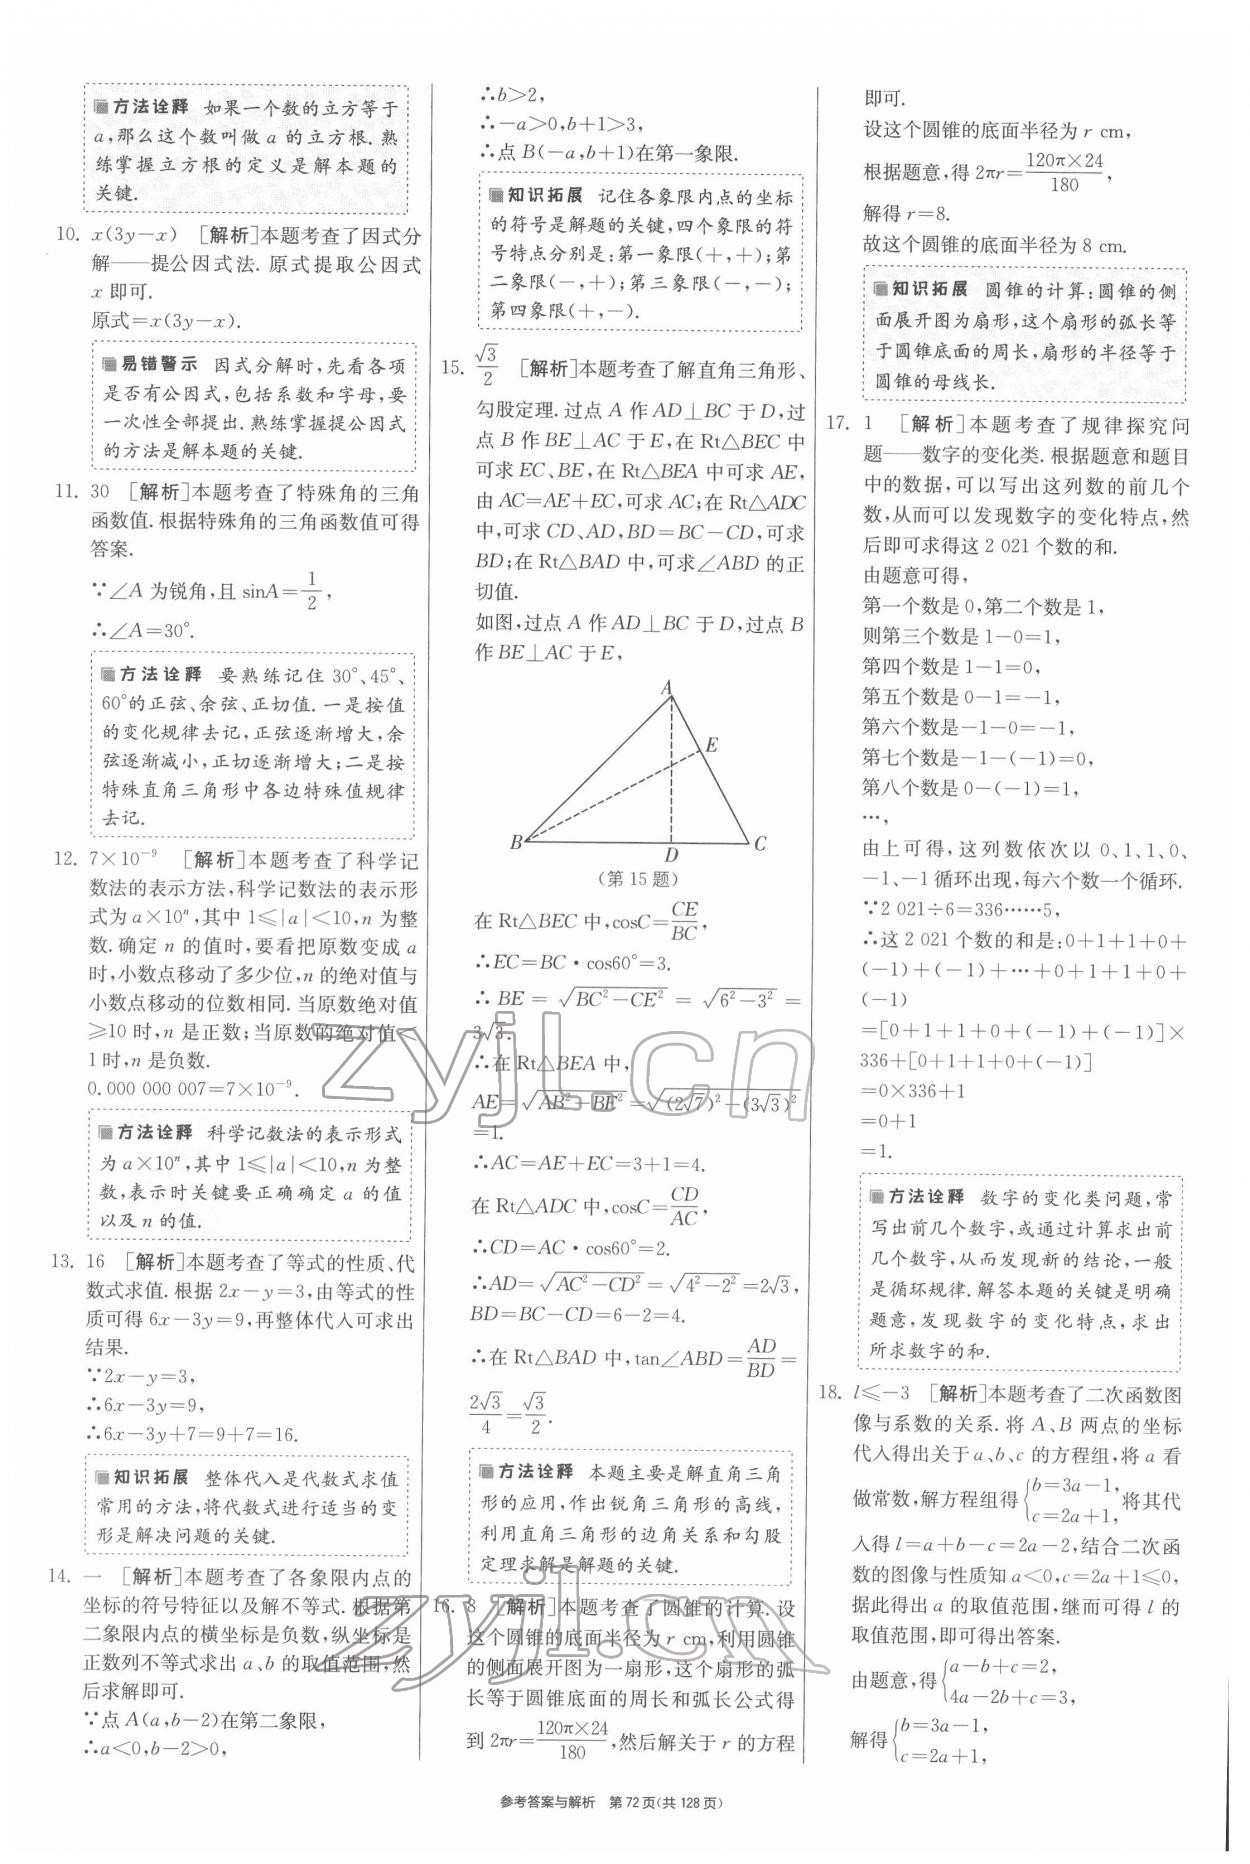 方法诠释 如果一个数的立方等于
a,那么这个数叫做 a 的立方根.熟
练掌握立方根的定义是解本题的
关键.
10. x(3y－x) [解析]本题考查了因式分
解——提公因式法.原式提取公因式
x 即可.
原式=x(3y－x).
易错警示 因式分解时,先看各项
是否有公因式,包括系数和字母,要
一次性全部提出.熟练掌握提公因式
的方法是解本题的关键.
11. 30 [解析]本题考查了特殊角的三角
函数值.根据特殊角的三角函数值可得
答案.
∵∠A 为锐角,且 sinA=1/2,
∴∠A=30°.
方法诠释 要熟练记住 30°、45°、
60°的正弦、余弦、正切值.一是按值
的变化规律去记,正弦逐渐增大,余
弦逐渐减小,正切逐渐增大;二是按
特殊直角三角形中各边特殊值规律
去记.
12. 7×10⁻⁹ [解析]本题考查了科学记
数法的表示方法,科学记数法的表示形
式为 a×10ⁿ,其中 1≤|a|<10,n 为整
数.确定 n 的值时,要看把原数变成 a
时,小数点移动了多少位,n 的绝对值与
小数点移动的位数相同.当原数绝对值
≥10 时,n 是正数;当原数的绝对值<
1时,n 是负数.
0.000 000 007=7×10⁻⁹.
方法诠释 科学记数法的表示形式
为 a×10ⁿ,其中 1≤|a|<10,n 为整
数,表示时关键要正确确定 a 的值
以及 n 的值.
13. 16 [解析]本题考查了等式的性质、代
数式求值.根据 2x－y=3,由等式的性
质可得 6x－3y=9,再整体代入可求出
结果.
∵2x－y=3,
∴6x－3y=9,
∴6x－3y+7=9+7=16.
知识拓展 整体代入是代数式求值
常用的方法,将代数式进行适当的变
形是解决问题的关键.
14. 一 [解析]本题考查了各象限内点的
坐标的符号特征以及解不等式.根据第
二象限内点的横坐标是负数,纵坐标是
正数列不等式求出 a、b 的取值范围,然
后求解即可.
∵点 A(a,b－2)在第二象限,
∴a<0,b－2>0,
∴b>2,
∴－a>0,b+1>3,
∴点 B(－a,b+1)在第一象限.
知识拓展 记住各象限内点的坐标
的符号是解题的关键,四个象限的符
号特点分别是:第一象限(+,+);第
二象限(－,+);第三象限(－,－);
第四象限(+,－).
15. √3/2 [解析]本题考查了解直角三角形、
勾股定理.过点 A 作 AD⊥BC 于 D,过
点 B 作 BE⊥AC 于 E,在 Rt△BEC 中
可求 EC、BE,在 Rt△BEA 中可求 AE,
由 AC=AE+EC,可求 AC;在 Rt△ADC
中,可求 CD、AD,BD=BC－CD,可求
BD;在 Rt△BAD 中,可求∠ABD 的正
切值.
如图,过点 A 作 AD⊥BC 于 D,过点 B
作 BE⊥AC 于 E,
A
E
B
D
C
(第 15 题)
在 Rt△BEC 中,cosC=CE/BC,
∴EC=BC·cos60°=3.
∴BE=√(BC²－CE²)=√(6²－3²)=
3√3.
∴在 Rt△BEA 中,
AE=√(AB²－BE²)=√((2√7)²－(3√3)²)
=1.
∴AC=AE+EC=3+1=4.
在 Rt△ADC 中,cosC=CD/AC,
∴CD=AC·cos60°=2.
∴AD=√(AC²－CD²)=√(4²－2²)=2√3,
BD=BC－CD=6－2=4.
∴在 Rt△BAD 中,tan∠ABD=AD/BD=
2√3/4=√3/2.
方法诠释 本题主要是解直角三角
形的应用,作出锐角三角形的高线,
利用直角三角形的边角关系和勾股
定理求解是解题的关键.
16. 8 [解析]本题考查了圆锥的计算.设
这个圆锥的底面半径为 r cm,利用圆锥
的侧面展开图为一扇形,这个扇形的弧
长等于圆锥底面的周长和弧长公式得
到 2πr=120π×24/180,然后解关于 r 的方程
即可.
设这个圆锥的底面半径为 r cm,
根据题意,得 2πr=120π×24/180,
解得 r=8.
故这个圆锥的底面半径为 8 cm.
知识拓展 圆锥的计算:圆锥的侧
面展开图为扇形,这个扇形的弧长等
于圆锥底面的周长,扇形的半径等于
圆锥的母线长.
17. 1 [解析]本题考查了规律探究问
题——数字的变化类.根据题意和题目
中的数据,可以写出这列数的前几个
数,从而可以发现数字的变化特点,然
后即可求得这 2 021 个数的和.
由题意可得,
第一个数是 0,第二个数是 1,
则第三个数是 1－0=1,
第四个数是 1－1=0,
第五个数是 0－1=－1,
第六个数是－1－0=－1,
第七个数是－1－(－1)=0,
第八个数是 0－(－1)=1,
…,
由上可得,这列数依次以 0、1、1、0、
－1、－1 循环出现,每六个数一个循环.
∵2 021÷6=336……5,
∴这 2 021 个数的和是:0+1+1+0+
(－1)+(－1)+…+0+1+1+0+
(－1)
=[0+1+1+0+(－1)+(－1)]×
336+[0+1+1+0+(－1)]
=0×336+1
=0+1
=1.
方法诠释 数字的变化类问题,常
写出前几个数字,或通过计算求出前
几个数字,从而发现新的结论,一般
是循环规律.解答本题的关键是明确
题意,发现数字的变化特点,求出
所求数字的和.
18. l≤－3 [解析]本题考查了二次函数图
像与系数的关系.将 A、B 两点的坐标
代入得出关于 a、b、c 的方程组,将 a 看
做常数,解方程组得{b=3a－1, c=2a+1,将其代
入得 l=a+b－c=2a－2,结合二次函
数的图像与性质知 a<0,c=2a+1≤0,
据此得出 a 的取值范围,继而可得 l 的
取值范围,即可得出答案.
由题意,得{a－b+c=2, 4a－2b+c=3,
解得{b=3a－1, c=2a+1,
参考答案与解析 第 72 页(共 128 页)
zyjl.cn
zyjl.cn